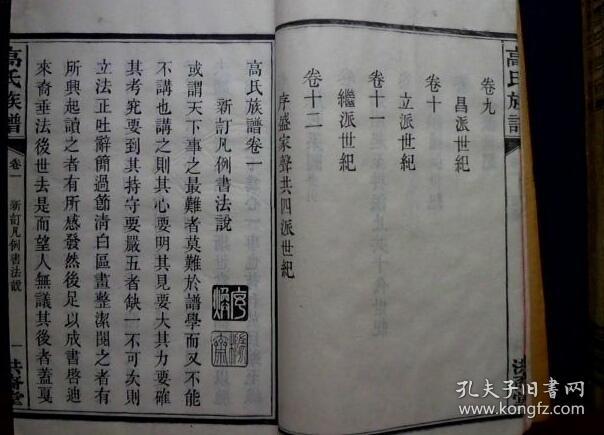 高氏族譜
卷九
昌派世紀
卷十
立派世紀
卷十一
繼派世紀
卷十二
序盛家聲共四派世紀
高氏族譜卷一
新訂凡例書法說
或謂天下事之最難者莫難於譜學而又不能
不講也講之則其心要明其見要大其力要確
其考究要到其持守要嚴五者缺一不可次則
立法正吐辭簡過節清白區畫整潔閱之者有
所興起讀之者有所感發然後足以戒書啓迪
來裔垂法後世去是而望人無議其後者蓋戛
高氏族譜
卷一
新訂凡例書法說
一
孔夫子旧书网
www.kongfz.com